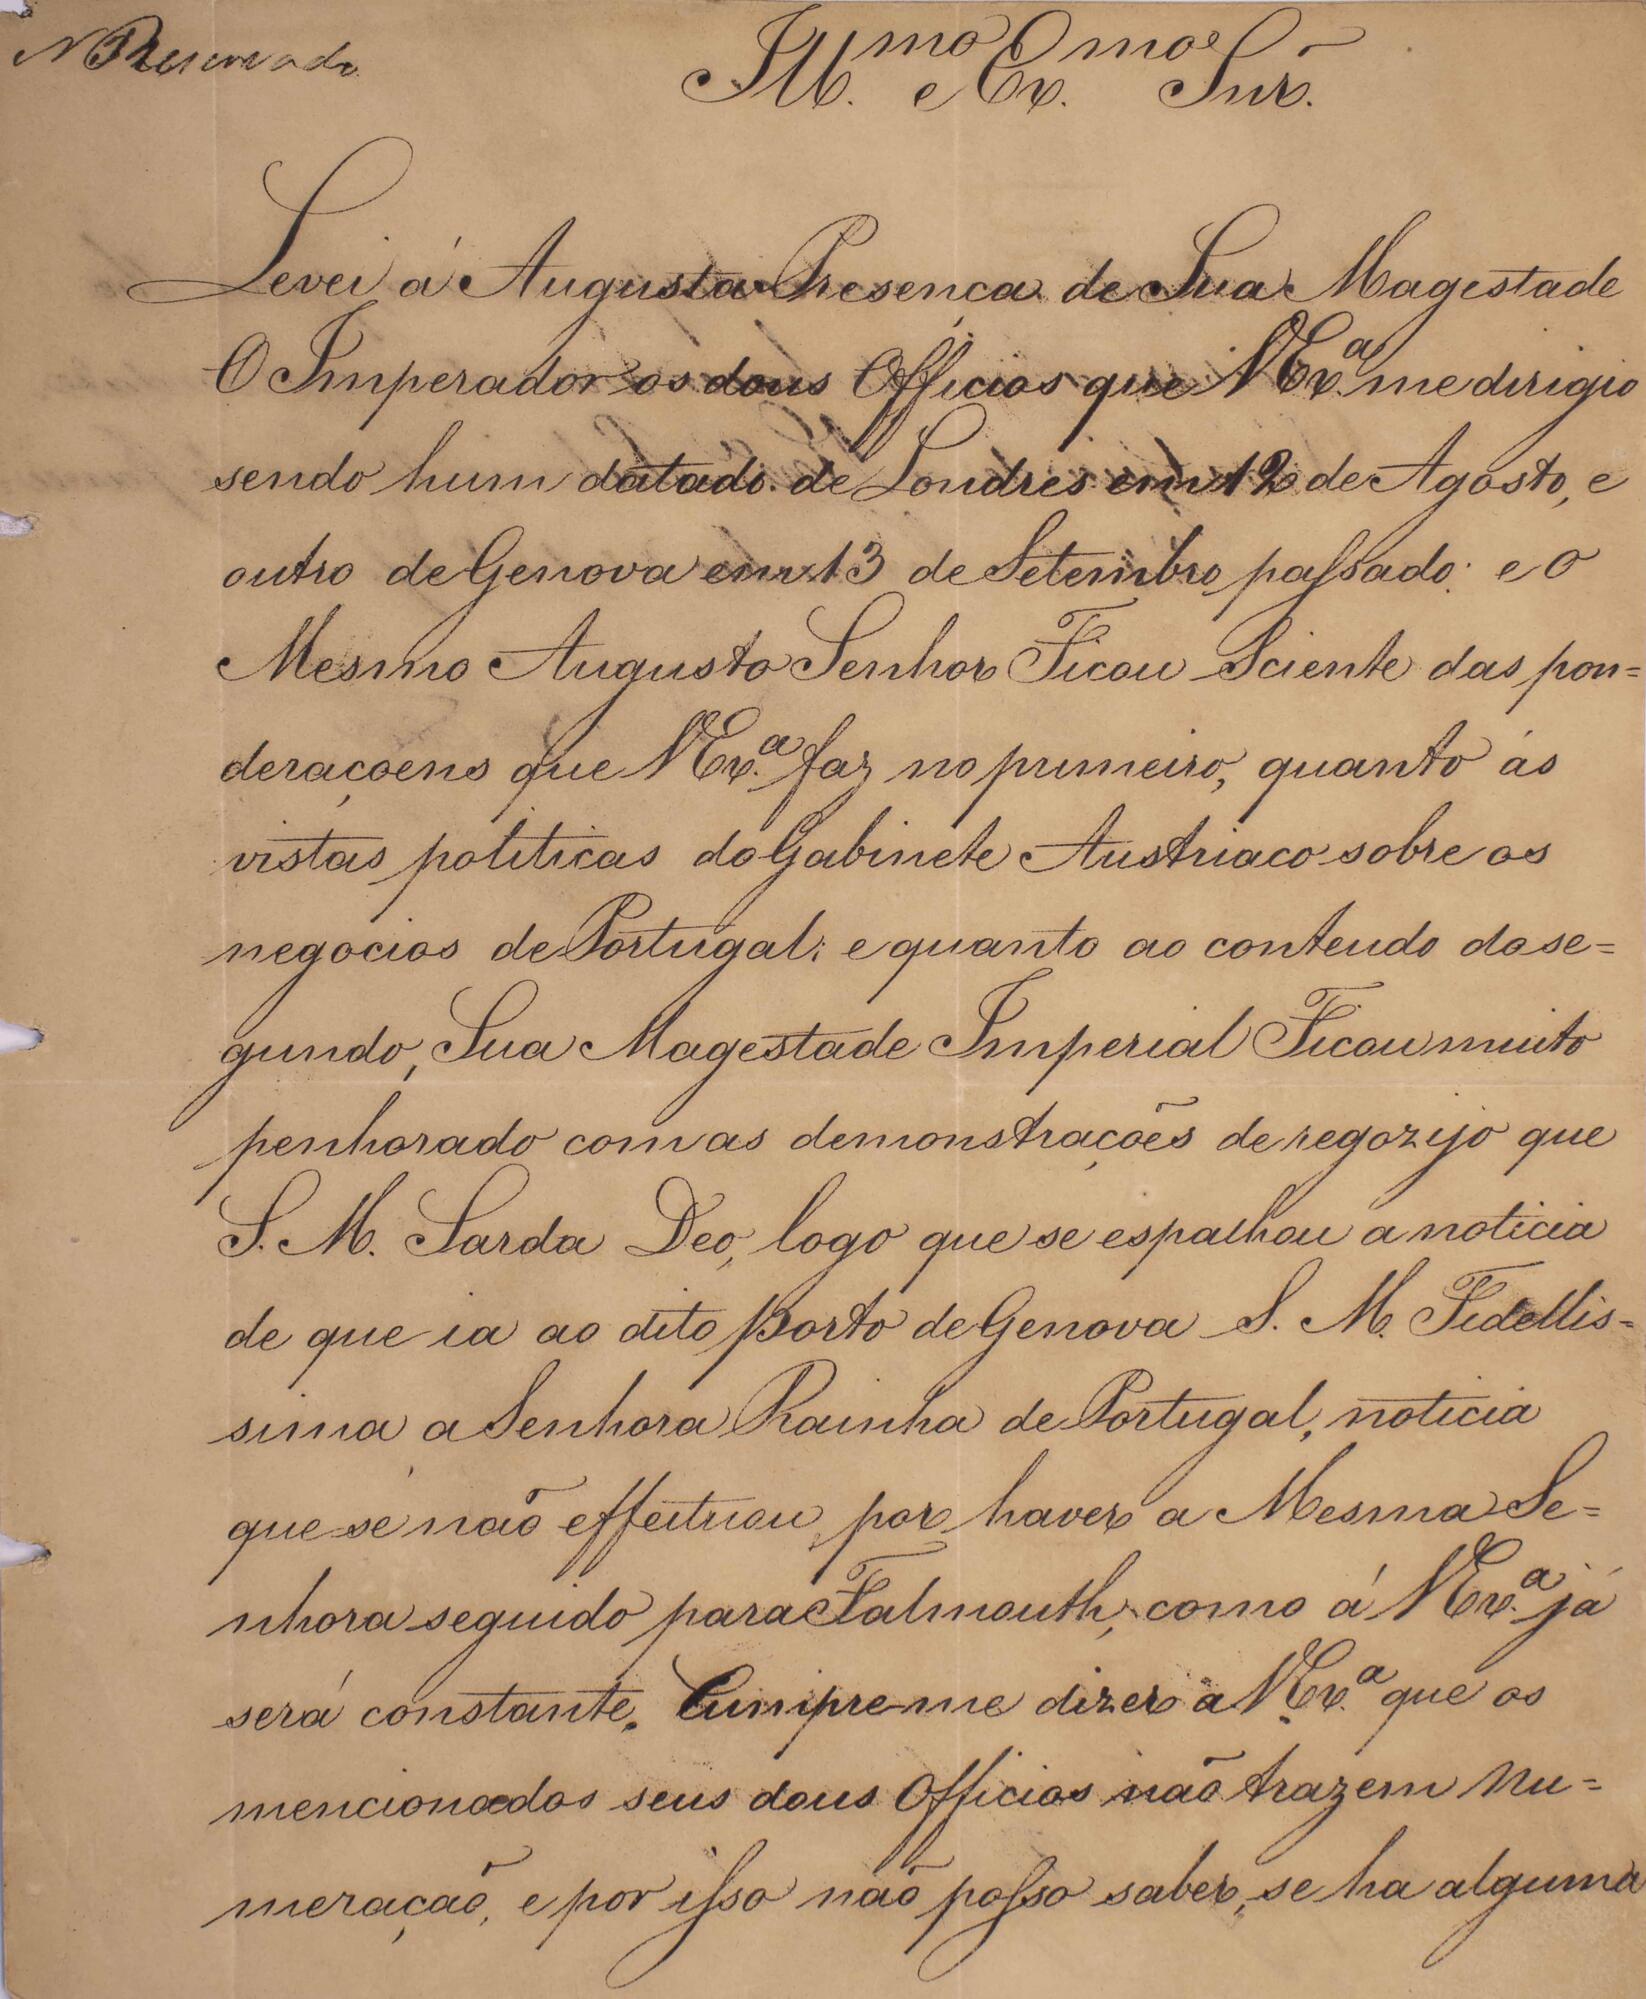 N Reservado
Ill.mo e Ex.mo Snr.
Levei á Augusta Presença de Sua Magestade
O Imperador os dous Officios que V Ex.a me dirigio
sendo hum datado de Londres em 12 de Agosto, e
outro de Genova em 13 de Setembro passado: e o
Mesmo Augusto Senhor Ficou Sciente das pon=
deraçoens que V Ex.a faz no primeiro, quanto ás
vistas politicas do Gabinete Austriaco sobre os
negocios de Portugal; e quanto ao conteudo do se=
gundo, Sua Magestade Imperial Ficou muito
penhorado com as demonstrações de regozijo que
S. M. Sarda Deo, logo que se espalhou a noticia
de que ia ao dito porto de Genova S. M. Fidellis=
sima a Senhora Rainha de Portugal, noticia
que se não effeituou por haver a Mesma Se=
nhora seguido para Falmouth, como á V Ex.a já
será constante. Cumpre-me dizer a V Ex.a que os
mencionados seus dous Officios não trazem nu=
meração, e por isso não posso saber, se ha alguma